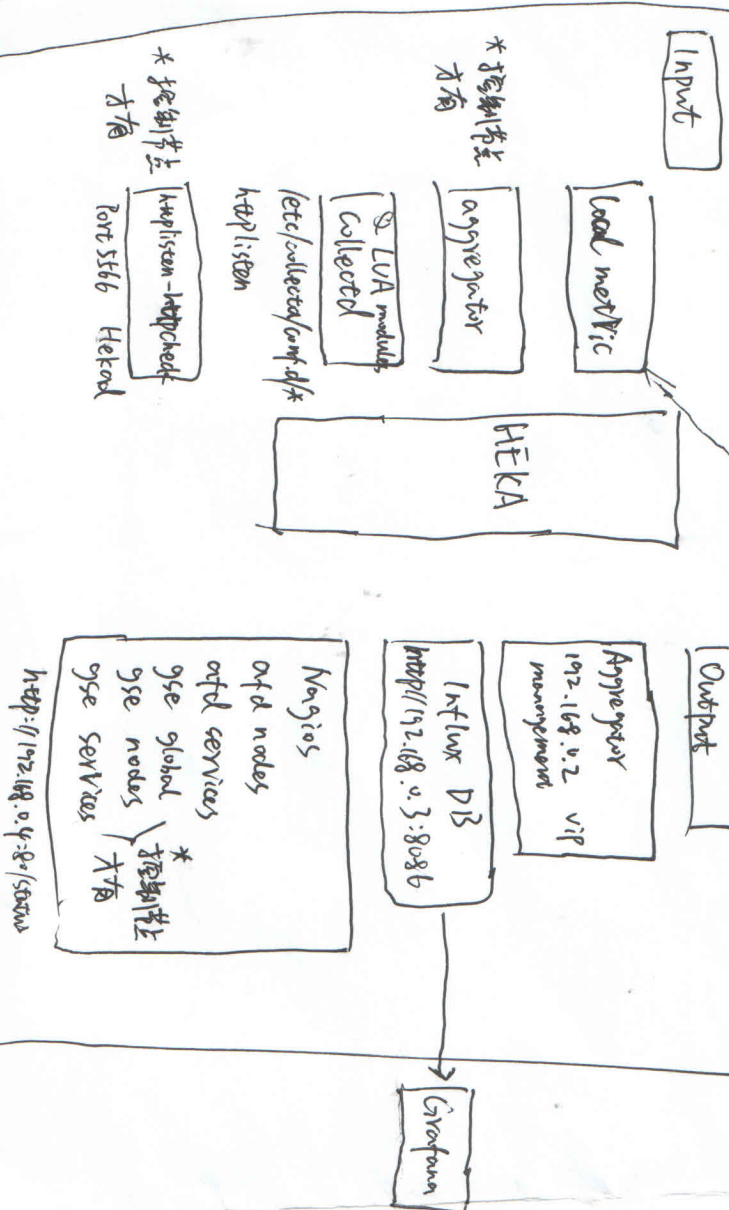 Input
local metric
* 控制节点
才有
aggregator
LUA modules
Collectd
/etc/collectd/conf.d/*
httplisten
* 控制节点
才有
httplisten-httpcheck
Port 5566 Hekad
HEKA
Output
Aggregator
192.168.0.2 vip
management
Influx DB
http://192.168.0.3:8086
Nagios
afd nodes
afd services
gse global
gse nodes
gse services
*
控制节点
才有
http://192.168.0.4:80/status
Grafana